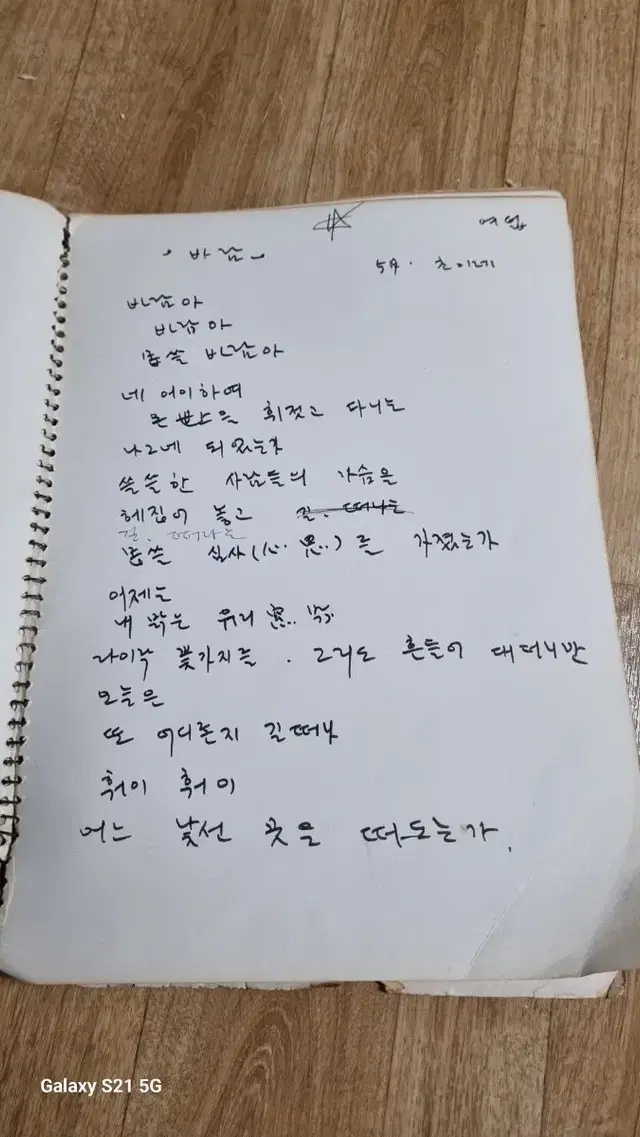 바람
5月. 초이레
바람아
바람아
몹쓸 바람아
네 어이하여
온 世上을 휘젓고 다니는
나그네 되었는가
쓸쓸한 사람들의 가슴을
헤집어 놓고 길. 떠나는
길. 떠나는
몹쓸 심사(心.. 思..)를 가졌는가
어제는
내 맑은 우리 窓..
라이락 꽃가지를. 그리도 흔들어 대더니만
오늘은
또 어디론지 길떠나
훠이 훠이
어느 낯선 곳을 떠도는가.
Galaxy S21 5G